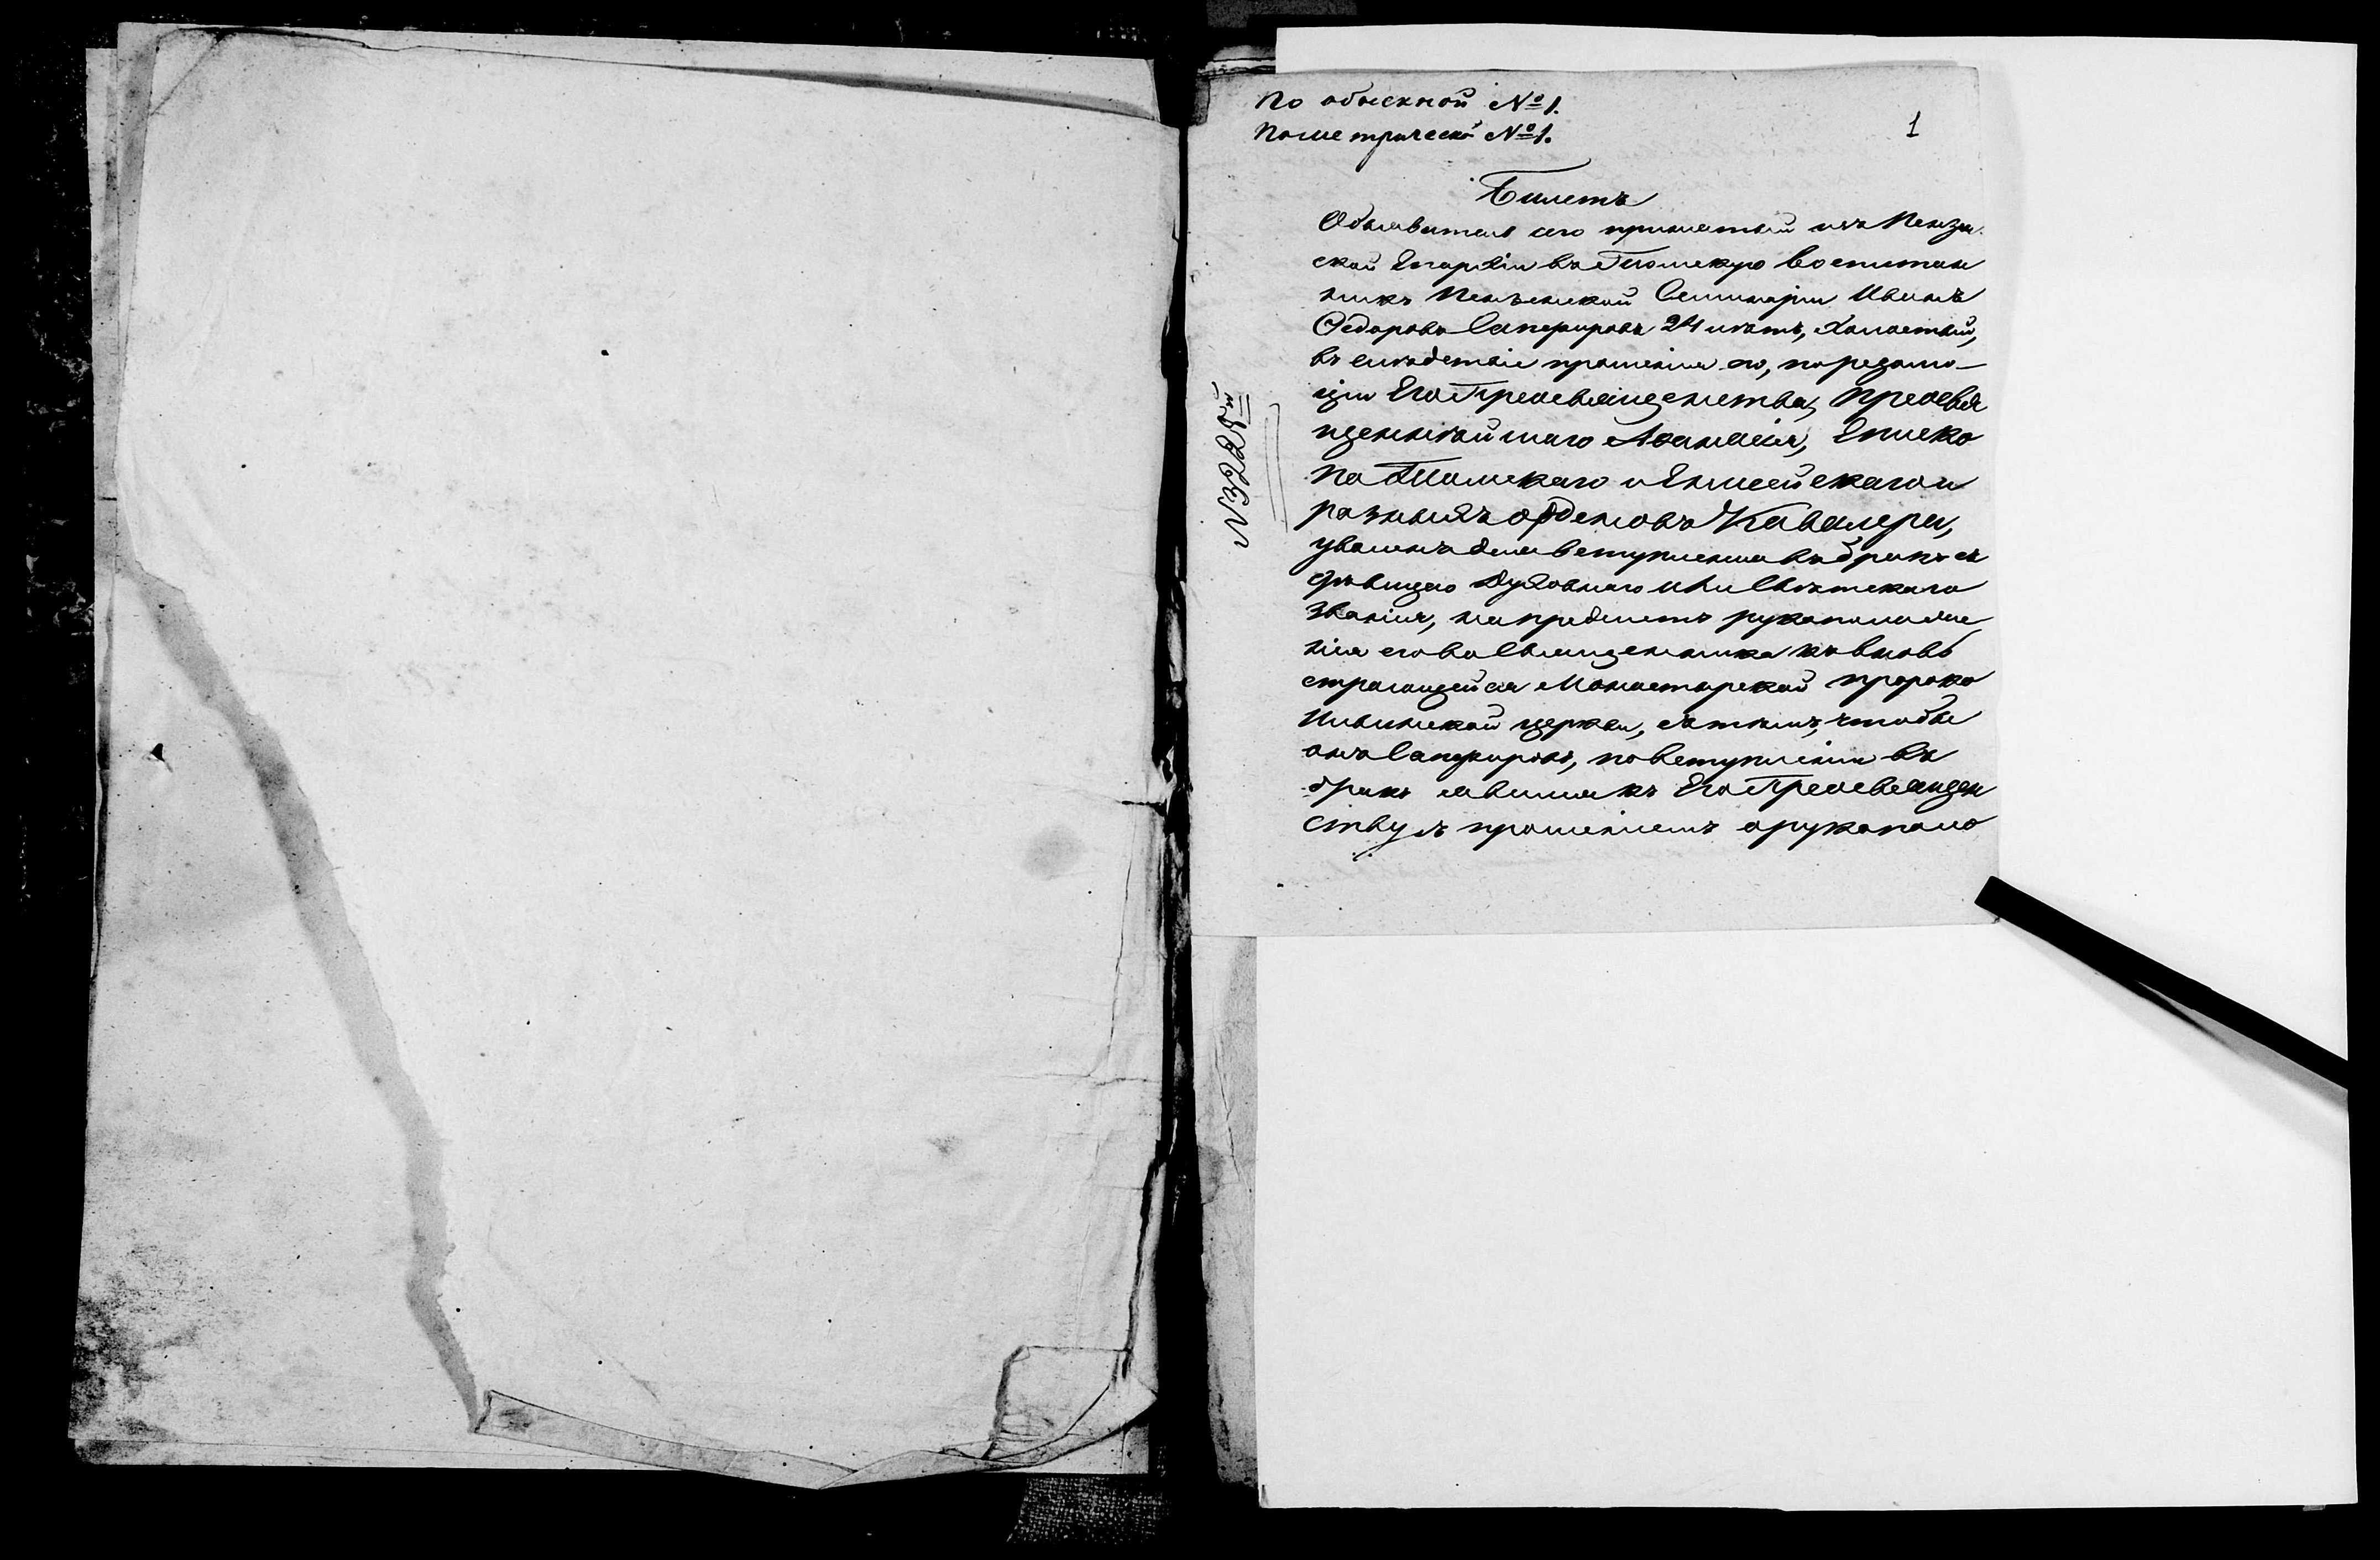 По обыскной № 1.
По метрической № 1.
1
Билетъ
Объявитель сего принятый изъ Пензен
ской Епархіи въ Томскую воспитан
никъ Пензенской Семинаріи Иванъ
Ѳедоровъ Сапфировъ 24 лѣтъ, холостый,
въ слѣдствіе прошенія его, по резолю-
ціи Его Преосвященства, Преосвя
щеннѣйшаго Аѳанасія, Еписко
па Томскаго и Енисейскаго и
разныхъ орденовъ Кавалера,
уволенъ для вступленія въ бракъ съ
дѣвицею духовнаго или свѣтскаго
званія, на предметъ рукоположе
нія его во Священника къ вновь
строющейся Монастырской пророко
Ильинской церкви, съ тѣмъ, чтобы
онъ Сапфировъ, по вступленіи въ
бракъ явился къ Его Преосвящен
ству съ прошеніемъ о рукополо
№ 3225й